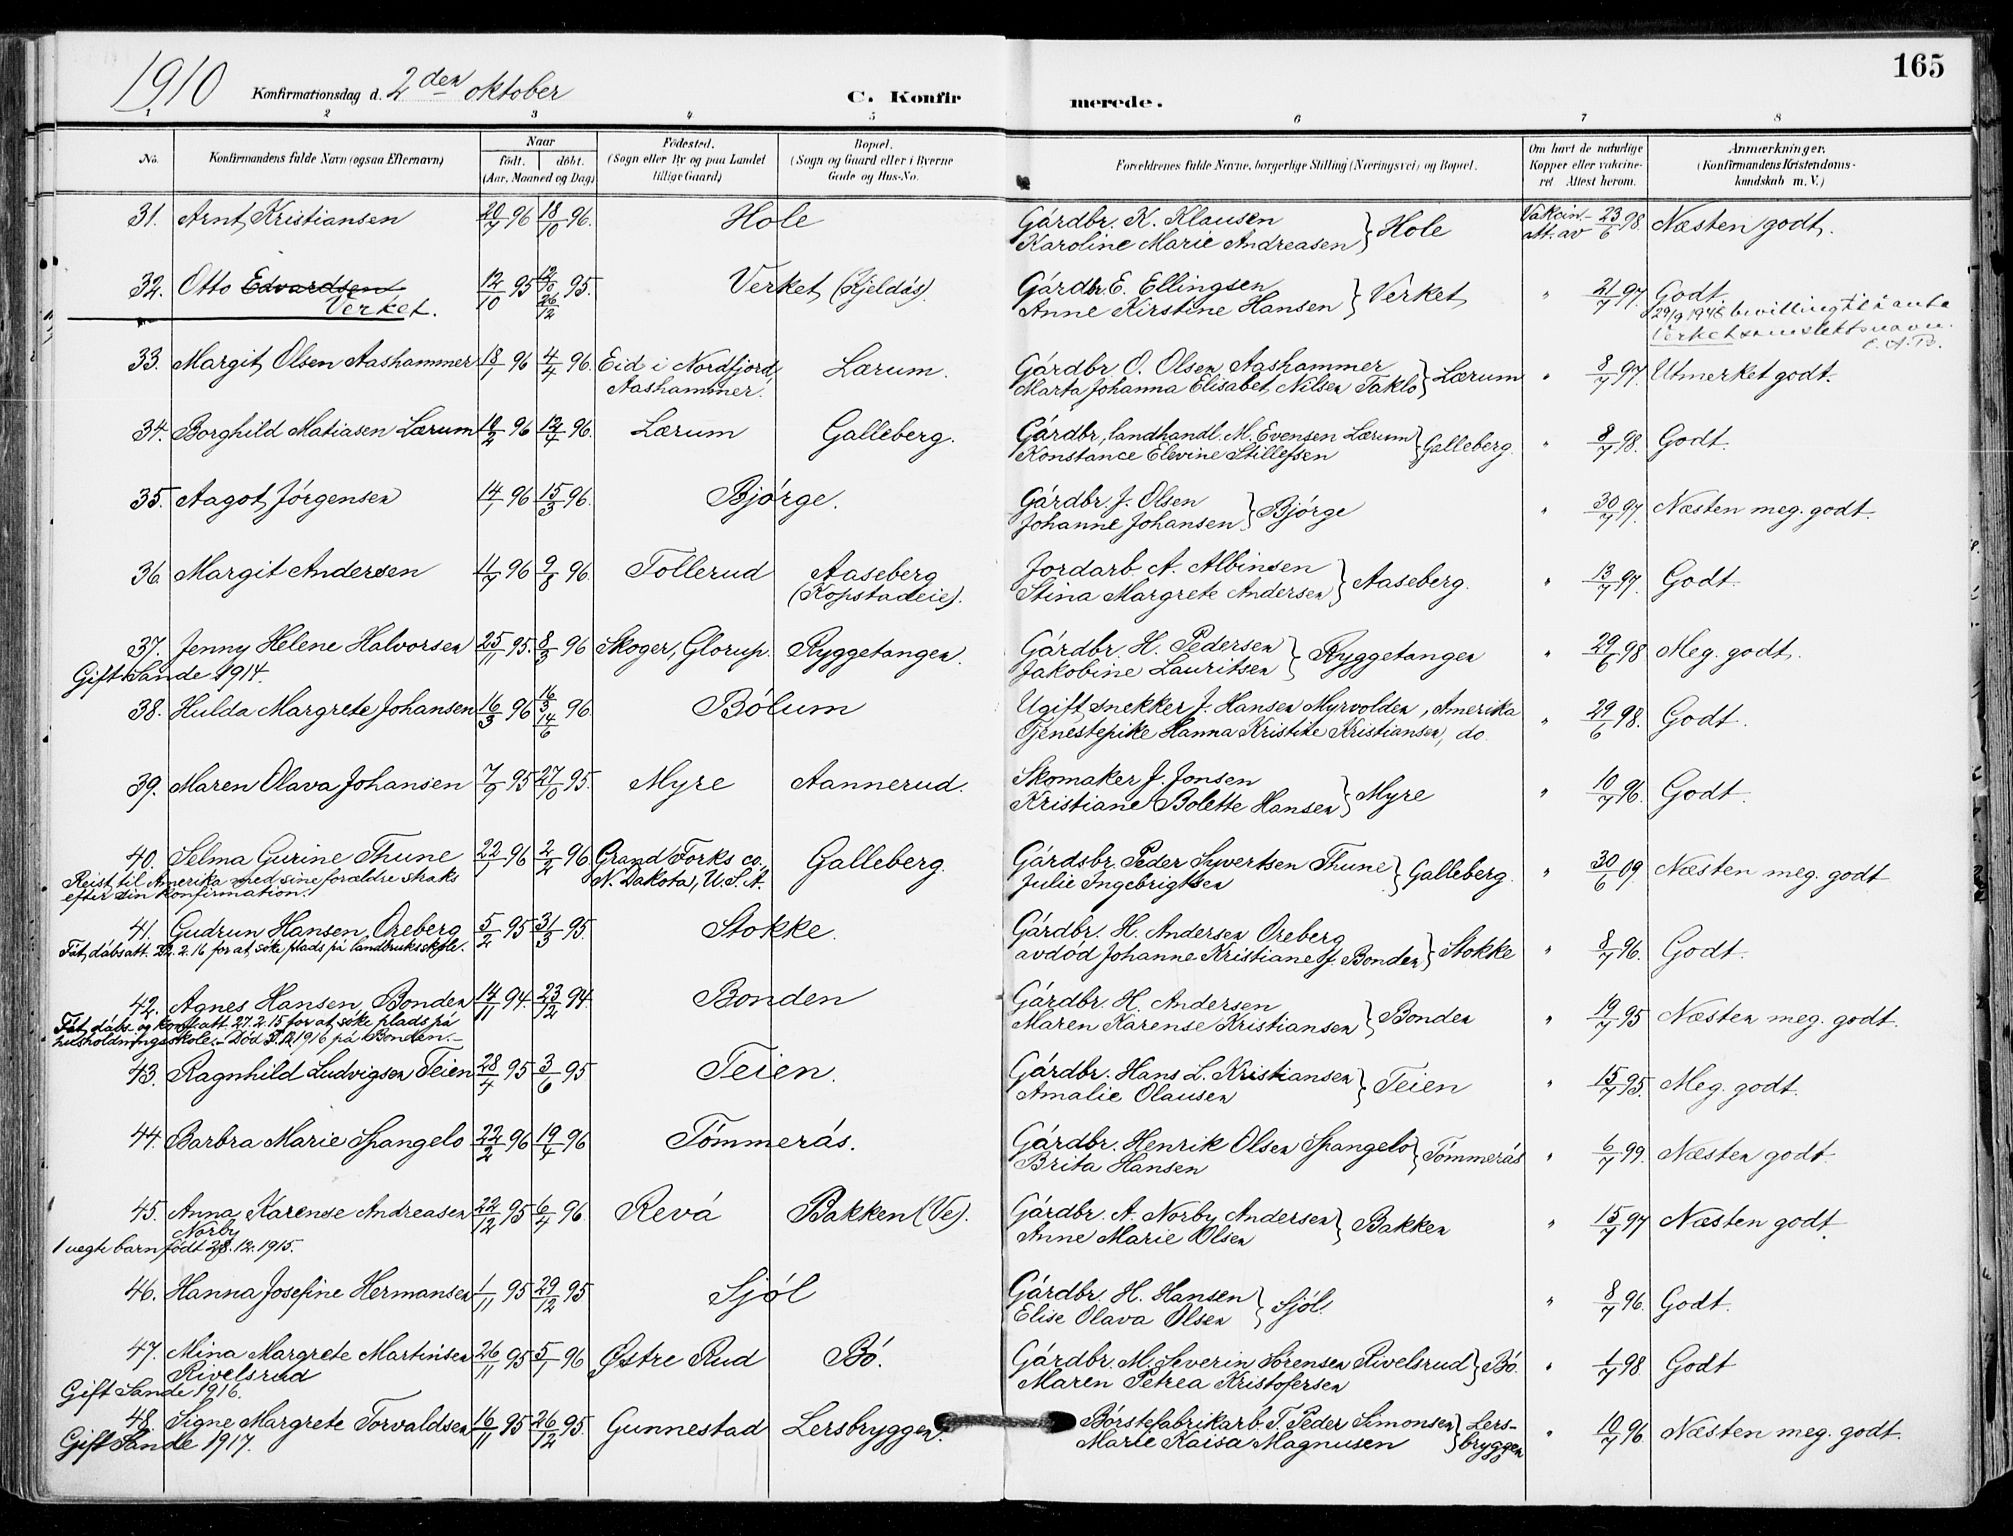 165
1910 Konfirmationsdag d. 2den oktober C. Konfirmerede.
1 2 3 4 5 6 7 8
No. Konfirmandens fulde Navn (ogsaa Efternavn) Naar födt. döbt. (Aar, Maaned og Dag) Födested. (Sogn eller By og paa Landet tillige Gaard) Bopæl. (Sogn og Gaard eller i Byerne Gade og Hus-No. Forældrenes fulde Navne, borgerlige Stilling (Næringsvei) og Bopæl. Om havt de naturlige Kopper eller vakcineret. Attest herom. Anmærkninger. (Konfirmandens Kristendomskundskab m. V.)
31. Arnt Kristiansen 20/7 96 18/10 96. Hole Gárdbr. K. Klausen Karoline Marie Andreasen } Hole Vakcin.att. av 23/6 98. Næsten godt.
32. Otto Edvardsen Verket. 12/10 95 12/10 26/12 95. Verket (Kjeldás). Gárdbr. E. Ellingsen Anne Kirstine Hansen } Verket " 21/7 97. Godt
29/9 1948 bevilling til å anta Verket som slektsnavn.
33. Margit Olsen Aashammer 18/1 96 4/4 96. Eid i Nordfjord, Aashammer. Lærum. Gárdbr. O. Olsen Aashammer Marta Johanna Elisabet Nilsen Taklo } Lærum " 8/7 97 Utmerket godt.
34. Borghild Matiasen Lærum 18/2 96 12/4 96. Lærum Galleberg. Gárdbr, landhandl. M. Evensen Lærum Konstance Elevine Stillefsen } Galleberg. " 8/7 98. Godt.
35. Aagot Jórgensen 14/1 96 15/3 96. Bjórge. Gárdbr. J. Olsen Johanne Johansen } Bjórge " 30/7 97. Næsten meg. godt.
36. Margit Andersen 11/7 96 9/8 96. Tollerud Aaseberg (Kopstadeie). Jordarb. A. Albinsen Stina Margrete Andersen } Aaseberg. " 13/7 97. Godt.
37. Jenny Helene Halvorsen 25/11 95. 8/3 96 Skoger, Glorup. Ryggetangen. Gárdbr. H. Pedersen Jakobine Lauritsen } Ryggetangen " 29/6 98 Meg. godt.
Gift Sande 1914.
38. Hulda Margrete Johansen 16/3 96 16/3 14/6 96. Bólum Ugift snekker J. Hansen Myrvolden, Amerika Tjenestepike Hanna Kristine Kristiansen, do. " 29/6 98. Godt.
39. Maren Olava Johansen 7/9 95 27/10 95. Myre Aannerud. Skomaker J. Jonsen Kristiane Bolette Hansen } Myre " 10/7 96. Godt.
40. Selma Gurine Thune 22/1 96 2/2 96 Grand Forks co., N. Dakota, U.S.A. Galleberg. Gárdsbr. Peder Syvertsen Thune Julie Ingebrigtsen } Galleberg. " 30/6 09. Næsten meg. godt
Reist til Amerika med sine forældre straks
efter sin konfirmation.
41. Gudrun Hansen Oreberg 5/2 95 31/3 95. Stokke. Gárdbr. H. Andersen Oreberg avdód Johanne Kristiane J. Bonden } Stokke " 8/7 96. Godt.
Fát dábsatt. 22.2.16 for at sóke plads pá landbruksskole.
42. Agnes Hansen Bonden 14/11 94. 23/12 94. Bonden Gárdbr. H. Andersen Maren Karense Kristiansen } Bonden " 19/7 95 Næsten meg. godt.
Fát dábs- og konf.att. 27.2.15 for at sóke plads pá
husholdningsskole. Dód 1916 pá Bonden.
43. Ragnhild Ludvigsen Teien 28/4 95 3/6 95 Teien. Gárdbr. Hans L. Kristiansen Amalie Olausen } Teien " 15/7 95. Meg. godt.
44. Barbra Marie Spangelo 22/2 96 19/4 96 Tómmerás. Gárdbr. Henrik Olsen Spangelo Brita Hansen } Tómmerás " 6/7 99. Næsten godt.
45. Anna Karense Andreasen Norby 22/12 95 6/4 96. Revá Bakken (Ve). Gárdbr. A. Norby Andersen Anne Marie Olsen } Bakken " 15/7 97 Næsten godt.
1 uegte barn fódt 28.12.1915.
46. Hanna Josefine Hermansen 1/11 95 29/12 95 Sjól Gárdbr. H. Hansen Elise Olava Olsen } Sjól. " 8/7 96. Godt.
47. Mina Margrete Martinsen Rivelsrud 26/11 95 5/1 96 Østre Rud Bó. Gárdbr. M. Severin Sórensen Rivelsrud Maren Petrea Kristofersen } Bó. " 1/7 98. Godt
Gift Sande 1916.
48. Signe Margrete Torvaldsen 16/11 95 26/12 95. Gunnestad Lersbryggen. Bórstefabrikarb. T. Peder Simonsen Marie Kaisa Magnusen } Lersbryggen " 10/7 96. Næsten meg. godt.
Gift Sande 1917.